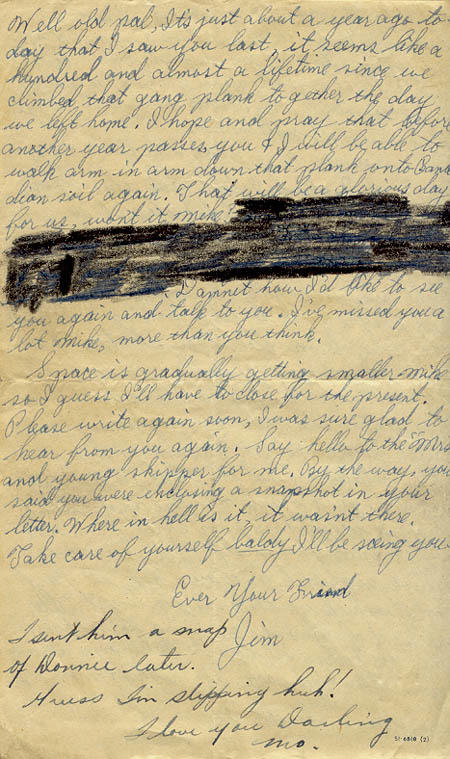 Well old pal, It's just about a year ago to-
day that I saw you last, it seems like a
hundred and almost a lifetime since we
climbed that gang plank together the day
we left home. I hope and pray that before
another year passes you & I will be able to
walk arm in arm down that plank onto Cana
dian soil again. That will be a glorious day
for us, won't it mike.
Damnet how I'd like to see
you again and talk to you. I've missed you a
lot mike, more than you think.
Space is gradually getting smaller mike
so I guess I'll have to close for the present.
Please write again soon, I was sure glad to
hear from you again. Say hello to the "Mrs
and young skipper for me. By the way, you
said you were enclosing a snapshot in your
letter. Where in hell is it, it wasn't there.
Take care of yourself baldy I'll be seeing you
Ever Your Friend
Jim
I sent him a snap
of Donnie later.
Guess I'm slipping huh!
I love you Darling
mo.
51-6818 (2)